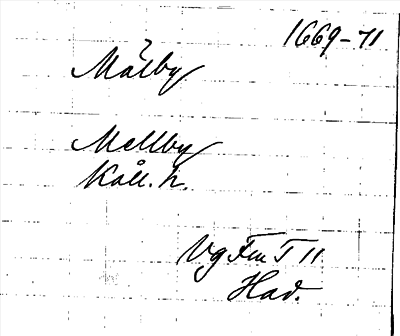 1669-71
Målby
Mellby
Kåll. h.
Vg Fm T 11
Had.